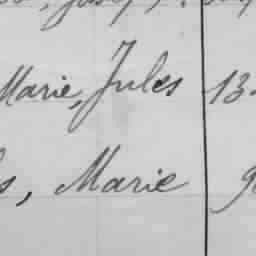 Marie, Jules 13
s, Marie 9